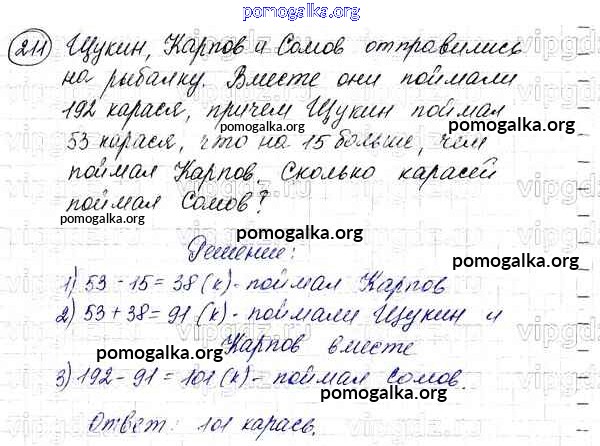 pomogalka.org
211 Щукин, Карпов и Сомов отправились
на рыбалку. Вместе они поймали
192 карася, причем Щукин поймал
pomogalka.org
pomogalka.org
53 карася, что на 15 больше, чем
поймал Карпов. Сколько карасей
поймал Сомов?
pomogalka.org
pomogalka.org
Решение:
pomogalka.org
1) 53 - 15 = 38 (к) - поймал Карпов
2) 53 + 38 = 91 (к) - поймали Щукин и
Карпов вместе
pomogalka.org
3) 192 - 91 = 101 (к) - поймал Сомов.
pomogalka.org
Ответ: 101 карась.